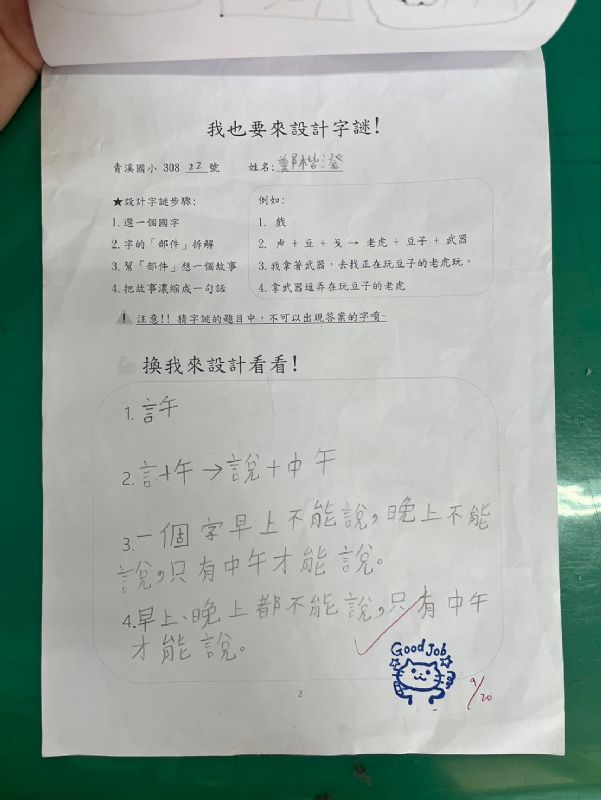 我也要來設計字謎!
青溪國小 308 22 號 姓名:鄭楷澄
★設計字謎步驟:
1.選一個國字
2.字的「部件」拆解
3.幫「部件」想一個故事
4.把故事濃縮成一句話
例如:
1. 戲
2. 虍 + 豆 + 戈 → 老虎 + 豆子 + 武器
3. 我拿著武器,去找正在玩豆子的老虎玩。
4. 拿武器逗弄在玩豆子的老虎
! 注意!! 猜字謎的題目中,不可以出現答案的字唷~
換我來設計看看!
1. 許
2. 言+午→說+中午
3. 一個字早上不能說,晚上不能
說,只有中午才能說。
4. 早上、晚上都不能說,只有中午
才能說。
Good Job
9/20
2